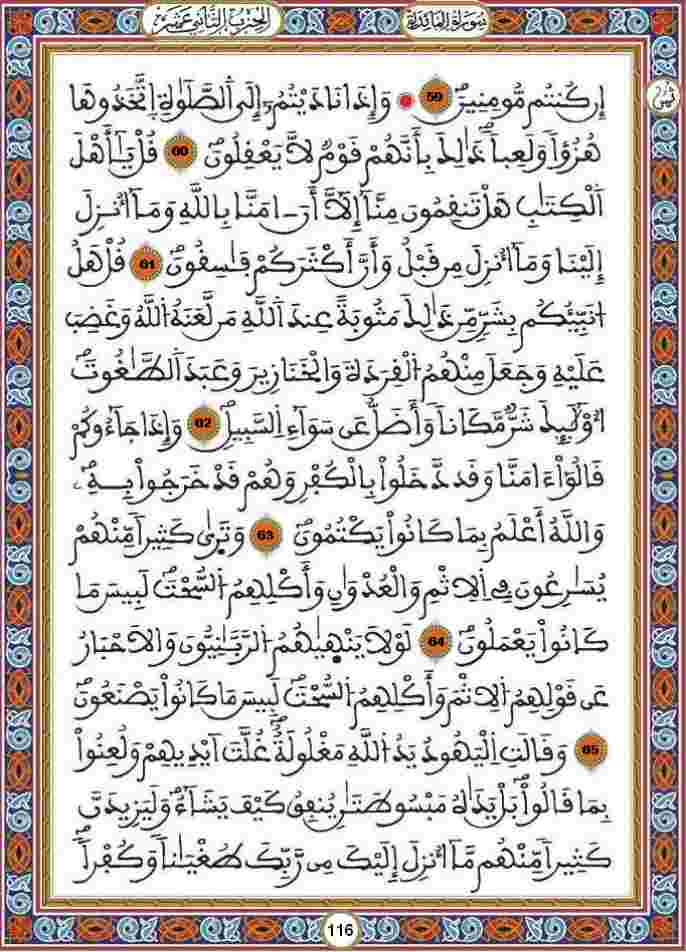 سورة المائدة
الحزب الثاني عشر
ثمن
إِن كُنتُم مُّومِنِينَ 59 وَإِذَا نَادَيْتُمُۥٓ إِلَى اَلصَّلَوٰةِ اِتَّخَذُوهَا
هُزُؤاً وَلَعِباً ذَٰلِكَ بِأَنَّهُمْ قَوْمٌ لَّا يَعْقِلُونَ 60 قُلْ يَٰٓأَهْلَ
اَلْكِتَٰبِ هَلْ تَنقِمُونَ مِنَّآ إِلَّآ أَنَ اٰمَنَّا بِاللَّهِ وَمَآ أُنزِلَ
إِلَيْنَا وَمَآ أُنزِلَ مِن قَبْلُ وَأَنَّ أَكْثَرَكُمْ فَٰسِقُونَ 61 قُلْ هَلُ
انَبِّئُكُم بِشَرٍّ مِّن ذَٰلِكَ مَثُوبَةً عِندَ اَللَّهِ مَن لَّعَنَهُ اُللَّهُ وَغَضِبَ
عَلَيْهِ وَجَعَلَ مِنْهُمُ اُلْقِرَدَةَ وَالْخَنَازِيرَ وَعَبَدَ اَلطَّٰغُوتَ
أُوْلَٰٓئِكَ شَرٌّ مَّكَاناً وَأَضَلُّ عَن سَوَآءِ اِلسَّبِيلِ 62 وَإِذَا جَآءُوكُمْ
قَالُوٓاْ ءَامَنَّا وَقَد دَّخَلُواْ بِالْكُفْرِ وَهُمْ قَدْ خَرَجُواْ بِهِۦ
وَاللَّهُ أَعْلَمُ بِمَا كَانُواْ يَكْتُمُونَ 63 وَتَرَىٰ كَثِيراً مِّنْهُمْ
يُسَٰرِعُونَ فِي اِلِاثْمِ وَالْعُدْوَٰنِ وَأَكْلِهِمُ اُلسُّحْتَ لَبِيسَ مَا
كَانُواْ يَعْمَلُونَ 64 لَوْلَا يَنْهَيٰهُمُ اُلرَّبَّٰنِيُّونَ وَالَاحْبَارُ
عَن قَوْلِهِمُ اُلِاثْمَ وَأَكْلِهِمُ اُلسُّحْتَ لَبِيسَ مَا كَانُواْ يَصْنَعُونَ
65 وَقَالَتِ اِلْيَهُودُ يَدُ اُللَّهِ مَغْلُولَةٌ غُلَّتَ اَيْدِيهِمْ وَلُعِنُواْ
بِمَا قَالُواْ بَلْ يَدَٰهُ مَبْسُوطَتَٰنِ يُنفِقُ كَيْفَ يَشَآءُ وَلَيَزِيدَنَّ
كَثِيراً مِّنْهُم مَّآ أُنزِلَ إِلَيْكَ مِن رَّبِّكَ طُغْيَٰناً وَكُفْراً
116